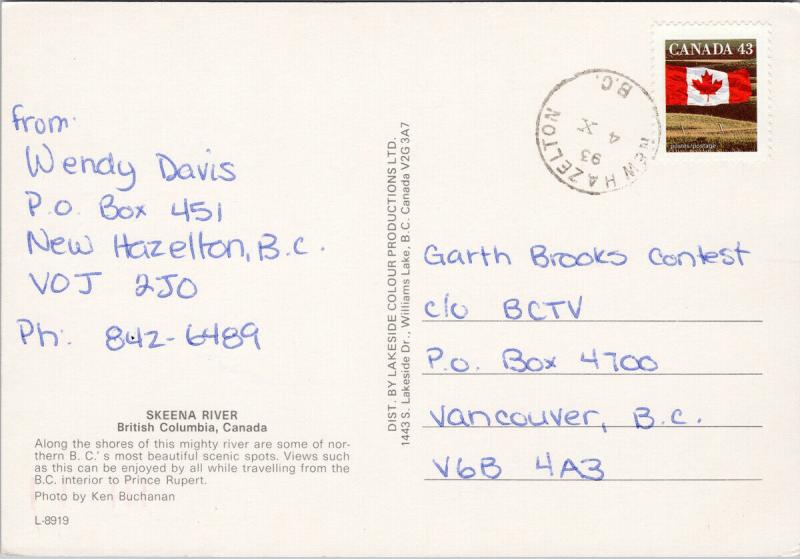 from:
Wendy Davis
P.O. Box 451
New Hazelton, B.C.
V0J 2J0
Ph: 842-6489
SKEENA RIVER
British Columbia, Canada
Along the shores of this mighty river are some of nor-
thern B. C.'s most beautiful scenic spots. Views such
as this can be enjoyed by all while travelling from the
B.C. interior to Prince Rupert.
Photo by Ken Buchanan
L-8919
DIST. BY LAKESIDE COLOUR PRODUCTIONS LTD.
1443 S. Lakeside Dr., Williams Lake, B.C. Canada V2G 3A7
CANADA 43
postes/postage
NEW HAZELTON
B.C.
4 X
93
Garth Brooks Contest
c/o BCTV
P.O. Box 4700
Vancouver, B.C.
V6B 4A3